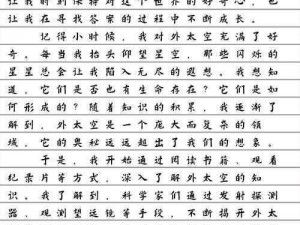 让我时刻对这个世界的好奇心，也
让我在寻找答案的过程中不断成长。
记得小时候，我对外太空充满了好
奇。每当我抬头仰望星空，那些闪烁的
星星总会让我陷入无尽的遐想。我想知
道，它们是否也有生命存在？它们是如
何形成的？随着知识的积累，我逐渐了
解到，外太空是一个庞大而复杂的领
域，它的奥秘远远超出了我们的想象。
于是，我开始通过阅读书籍、观看
纪录片等方式，深入了解外太空的知
识。我了解到，科学家们通过发射探测
器、观测望远镜等手段，不断揭开外太